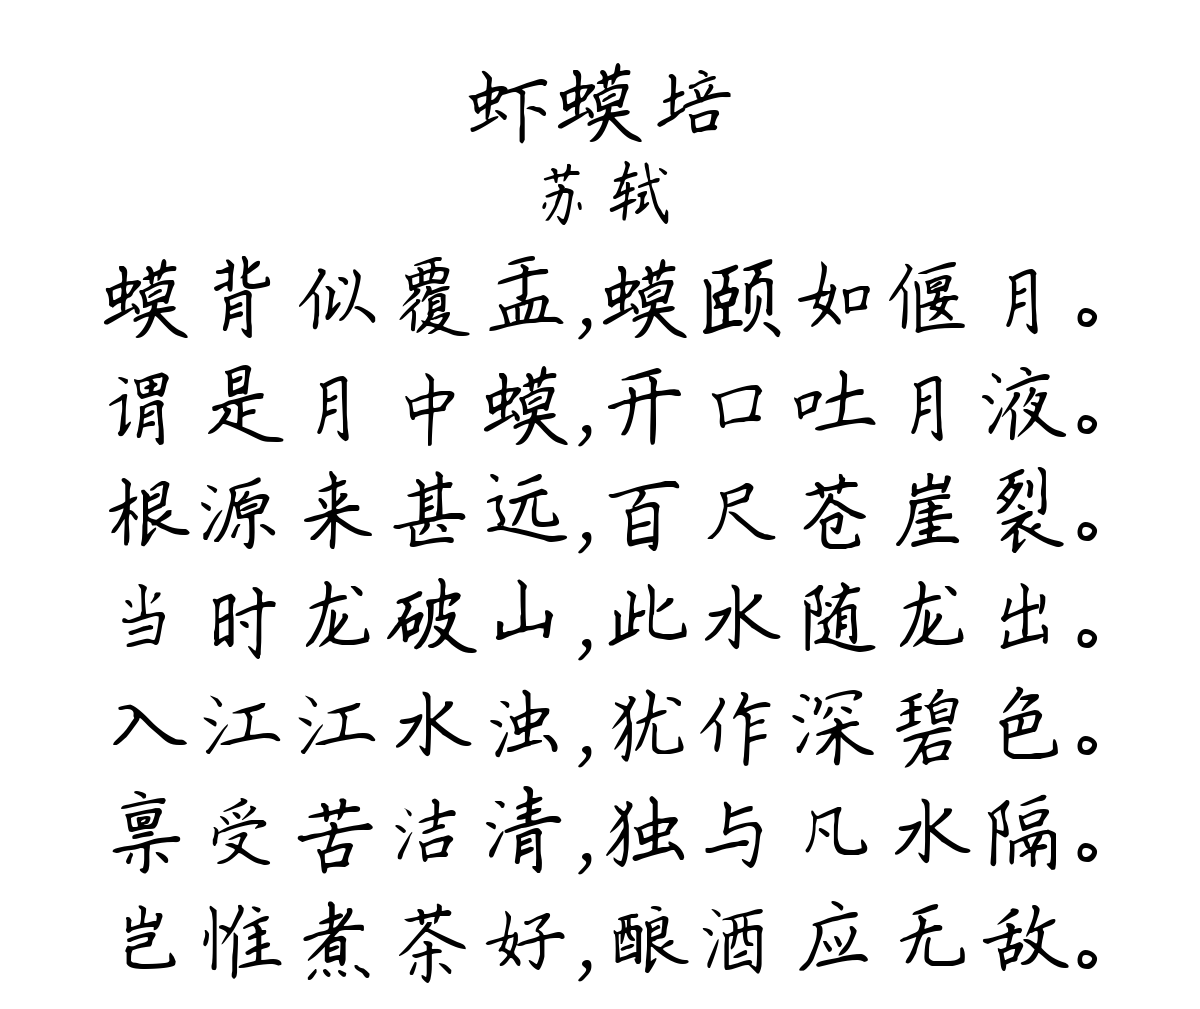 虾蟆培
苏轼
蟆背似覆盂,蟆颐如偃月。
谓是月中蟆,开口吐月液。
根源来甚远,百尺苍崖裂。
当时龙破山,此水随龙出。
入江江水浊,犹作深碧色。
禀受苦洁清,独与凡水隔。
岂惟煮茶好,酿酒应无敌。